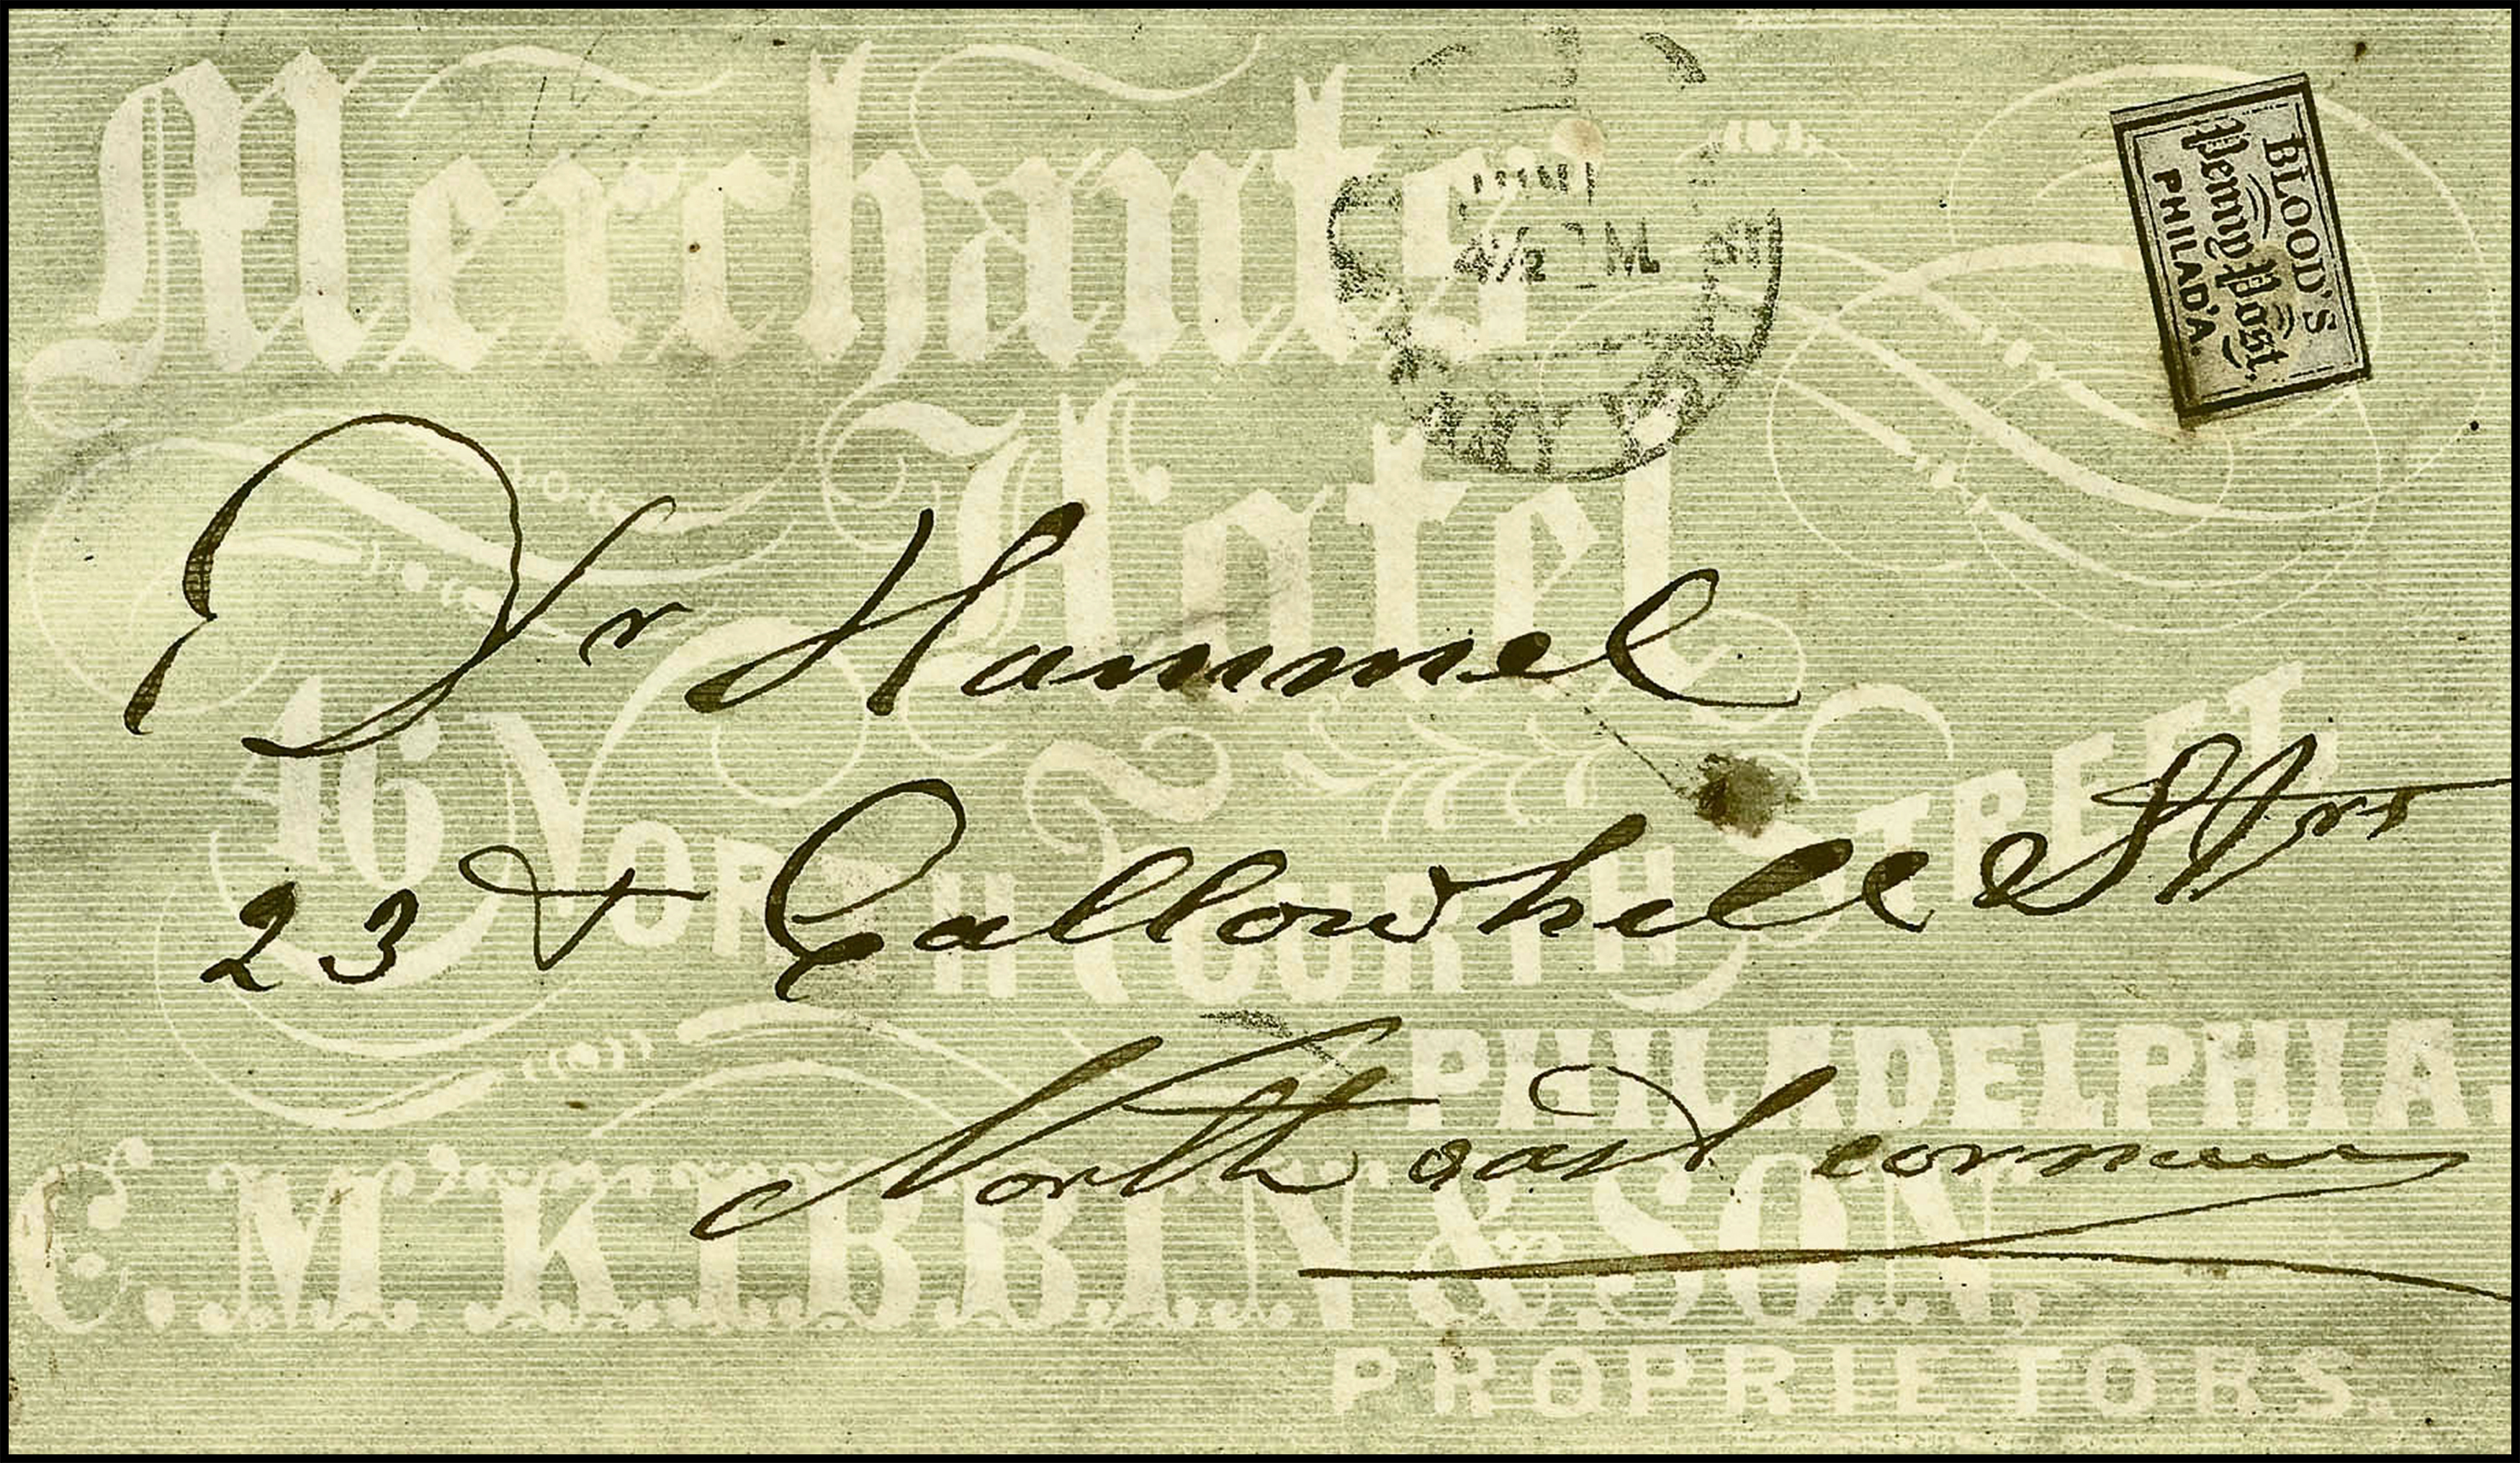 Merchants
Hotel
46 NORTH FOURTH STREET,
PHILADELPHIA.
C. M'KIBBIN & SON,
PROPRIETORS.
BLOOD'S
Penny Post,
PHILAD'A.
4½ PM
Dr Hammel
23 & Callowhill Strs
North east corner